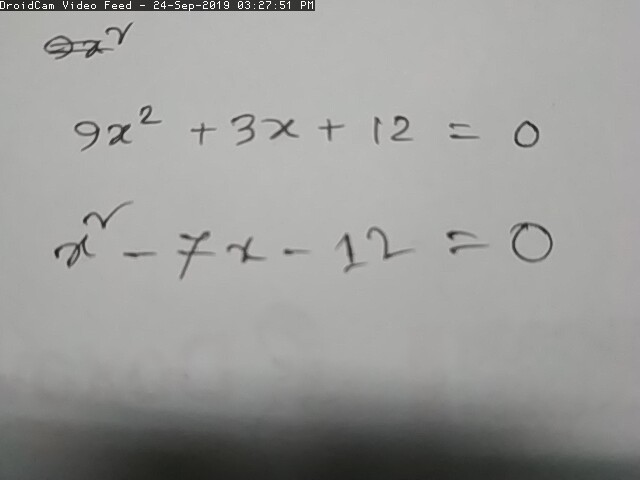 DroidCam Video Feed - 24-Sep-2019 03:27:51 PM
9x² + 3x + 12 = 0
x² - 7x - 12 = 0